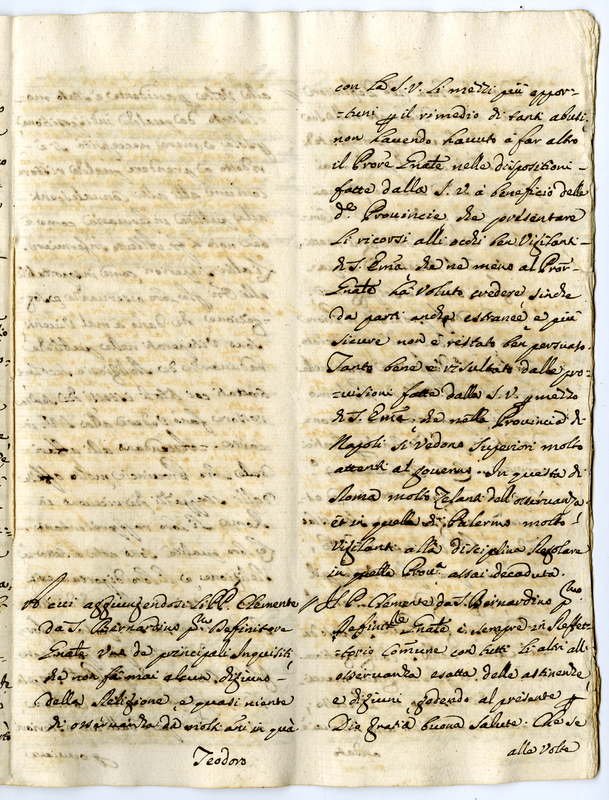 con la S. V. li mezzi più oppor-
-tuni p il rimedio di tanti abusi,
non havendo havuto à far altro
il Prôre Gñale nelle disposizioni
fatte dalla S. V. à beneficio delle
de Provincie che presentare
li ricorsi alli occhi ben Vigilanti
di S. Emã, che ne meno al Prôr
Gñale hà voluto credere sinche
da parti anche estranee e più
sicure non è restato ben persuaso.
Tanto bene è risultato dalle pro-
-visioni fatte dalla S. V. p mezzo
di S. Emã, che nella Provincia di
Napoli si vedono Superiori molto
attenti al governo. In questa di
Roma molto Zelanti dell'osservanza
et in quella di Palermo molto
vigilanti alla disciplina Regolare
in quella Prova assai decaduta.
A cui aggiungendosi li PP. Clemente
da S. Bernardino pmo Definitore
Gñale uno de principali Inquisiti
che non fà mai alcun digiuno
della Religione, e quasi niente
di osservanza da molti anni in quà.
Teodoro
Il P. Clemente da S. Bernardino pmo
Definitre Gñale è sempre in Refett-
-torio comune con tutti li altri all'
osservanza esatta delle astinenze
e digiuni, godendo al presente p
Dio gratia buona salute. Che se
alle volte